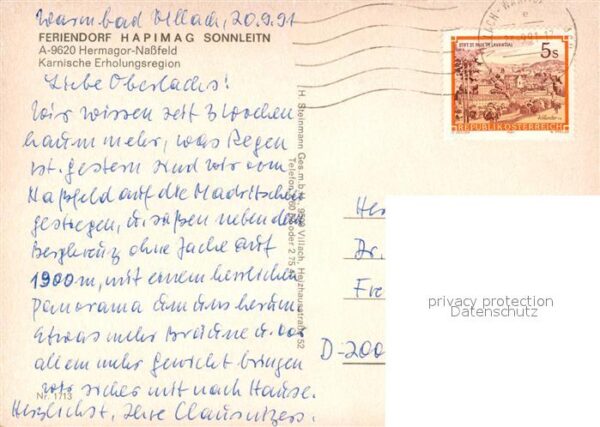 Warmbad Villach, 20.9.91
FERIENDORF HAPIMAG SONNLEITN
A-9620 Hermagor-Naßfeld
Karnische Erholungsregion
Liebe
Wir wissen seit 3 Wochen
kaum mehr, was Regen
ist. Gestern sind wir vom
Naßfeld auf die Madritschen
gestiegen, u. saßen neben dem
Bergkreuz ohne Jacke auf
1900 m, mit einem herrlichen
Panorama um uns herum.
Etwas mehr Bräune u. vor
allem mehr Gewicht bringen
wir sicher mit nach Hause.
Nr. 1713
Herzlichst, Ihre
H. Steinmann Ges.m.b.H., 9500 Villach, Heizhausstraße 52
Telefon
STIFT ST. PAUL IM LAVANTTAL
5 S
REPUBLIK ÖSTERREICH
Dr.
D-200
privacy protection
Datenschutz